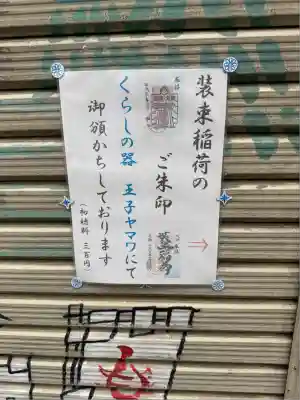 装束稲荷の
ご朱印
くらしの器 王子ヤマワにて
御頒かちしております
(初穂料 三百円)
→